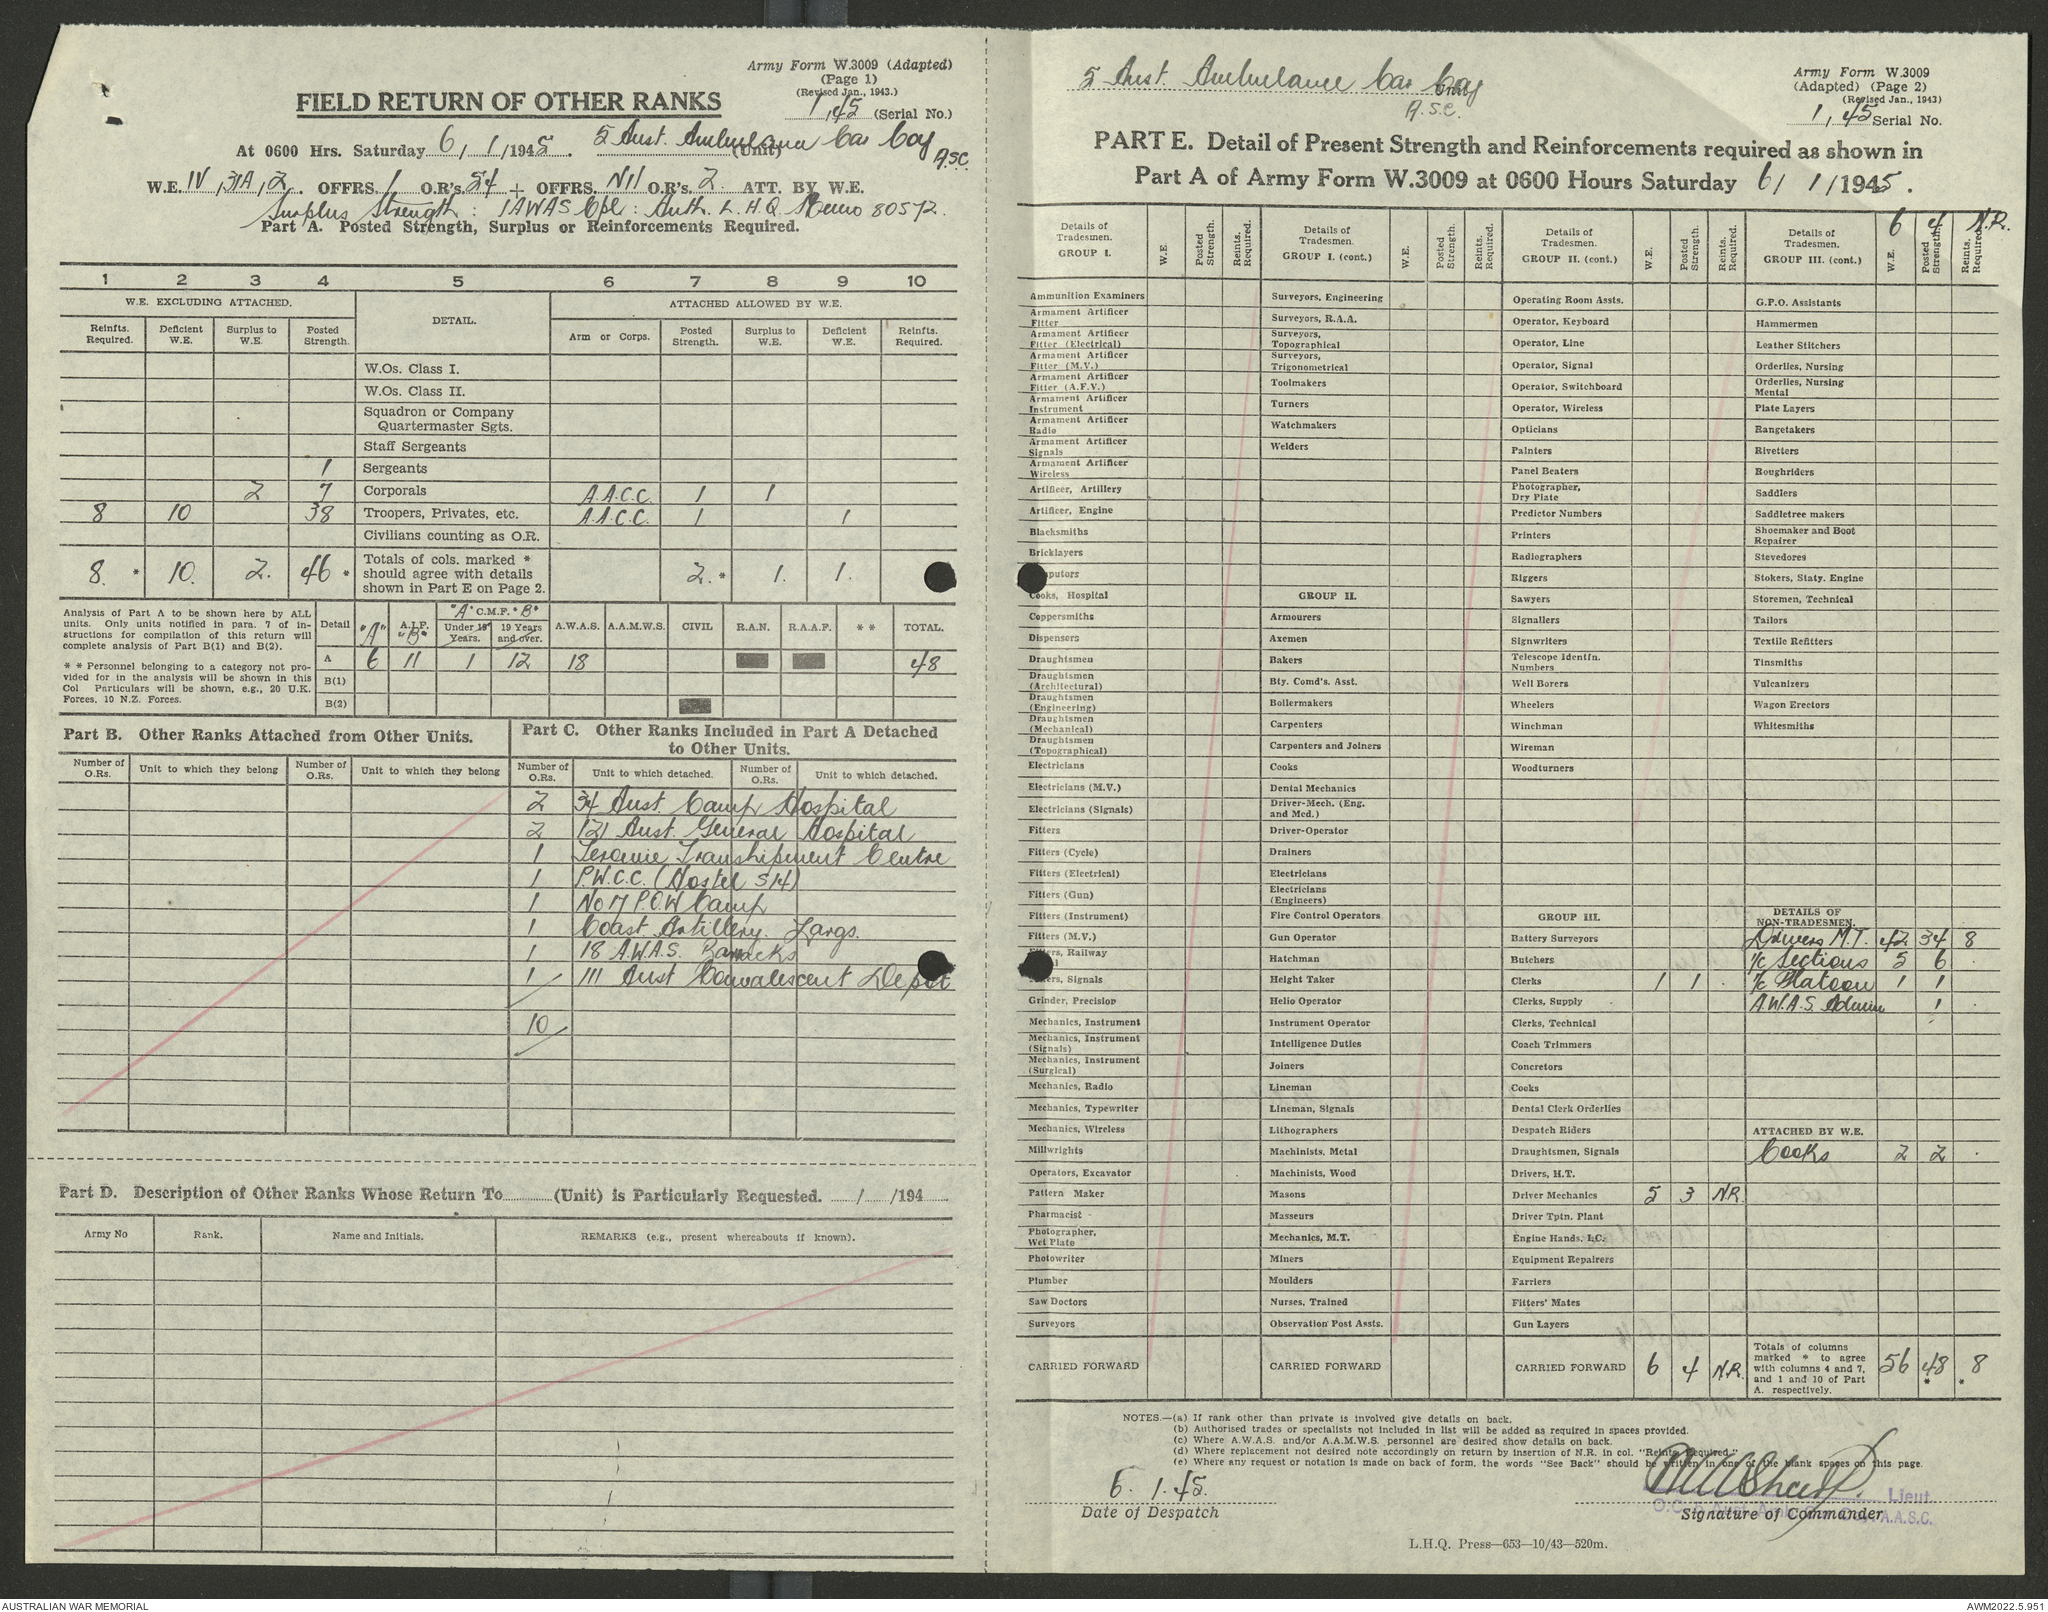 Army Form W.3009 (Adapted)
(Page 1)
(Revised Jan., 1943.)
FIELD RETURN OF OTHER RANKS
1, 45 (Serial No.)
At 0600 Hrs. Saturday 6/1/1945. 5 Aust. Ambulance Car Coy (Unit)
A.S.C.
W.E. IV, 31A, 2. OFFRS. 1 O.R's. 54 + OFFRS. Nil O.R's. 2 ATT. BY W.E.
Surplus Strength: 1AWAS Cpl: Auth. L.H.Q. Memo 80572.
Part A. Posted Strength, Surplus or Reinforcements Required.
1 2 3 4 5 6 7 8 9 10
W.E. EXCLUDING ATTACHED. DETAIL. ATTACHED ALLOWED BY W.E.
Reinfts. Required. Deficient W.E. Surplus to W.E. Posted Strength. Arm or Corps. Posted Strength. Surplus to W.E. Deficient W.E. Reinfts. Required.
W.Os. Class I.
W.Os. Class II.
Squadron or Company
Quartermaster Sgts.
Staff Sergeants
1 Sergeants
2 7 Corporals A.A.C.C. 1 1
8 10 38 Troopers, Privates, etc. A.A.C.C. 1 1
Civilians counting as O.R.
8. * 10. 2. 46 * Totals of cols. marked * should agree with details shown in Part E on Page 2. 2. * 1. 1.
Analysis of Part A to be shown here by ALL units. Only units notified in para. 7 of instructions for compilation of this return will complete analysis of Part B(1) and B(2).
* * Personnel belonging to a category not provided for in the analysis will be shown in this Col Particulars will be shown, e.g., 20 U.K. Forces, 10 N.Z. Forces.
Detail "A" A.I.F. "B" "A" C.M.F. "B" Under 19 Years. 19 Years and over. A.W.A.S. A.A.M.W.S. CIVIL R.A.N. R.A.A.F. * * TOTAL.
A 6 11 1 12 18 48
B(1)
B(2)
Part B. Other Ranks Attached from Other Units.
Number of O.Rs. Unit to which they belong Number of O.Rs. Unit to which they belong
Part C. Other Ranks Included in Part A Detached
to Other Units.
Number of O.Rs. Unit to which detached. Number of O.Rs. Unit to which detached.
2 34 Aust Camp Hospital
2 121 Aust. General Hospital
1 Terowie Transhipment Centre
1 P.W.C.C. (Hostel S14)
1 No 17 P.O.W Camp
1 Coast Artillery. Largs.
1 18 A.W.A.S. Barracks
1 111 Aust Convalescent Depot
10
Part D. Description of Other Ranks Whose Return To (Unit) is Particularly Requested. / /194
Army No Rank. Name and Initials. REMARKS (e.g., present whereabouts if known).
5 Aust. Ambulance Car Coy
A.S.C.
Army Form W.3009
(Adapted) (Page 2)
(Revised Jan., 1943)
1, 45 Serial No.
PART E. Detail of Present Strength and Reinforcements required as shown in
Part A of Army Form W.3009 at 0600 Hours Saturday 6/1/1945.
Details of Tradesmen. GROUP I. W.E. Posted Strength. Reints. Required.
Ammunition Examiners
Armament Artificer Fitter
Armament Artificer Fitter (Electrical)
Armament Artificer Fitter (M.V.)
Armament Artificer Fitter (A.F.V.)
Armament Artificer Instrument
Armament Artificer Radio
Armament Artificer Signals
Armament Artificer Wireless
Artificer, Artillery
Artificer, Engine
Blacksmiths
Bricklayers
Cooks, Hospital
Coppersmiths
Dispensers
Draughtsmen
Draughtsmen (Architectural)
Draughtsmen (Engineering)
Draughtsmen (Mechanical)
Draughtsmen (Topographical)
Electricians
Electricians (M.V.)
Electricians (Signals)
Fitters
Fitters (Cycle)
Fitters (Electrical)
Fitters (Gun)
Fitters (Instrument)
Fitters (M.V.)
Railway
Signals
Grinder, Precision
Mechanics, Instrument
Mechanics, Instrument (Signals)
Mechanics, Instrument (Surgical)
Mechanics, Radio
Mechanics, Typewriter
Mechanics, Wireless
Millwrights
Operators, Excavator
Pattern Maker
Pharmacist
Photographer, Wet Plate
Photowriter
Plumber
Saw Doctors
Surveyors
CARRIED FORWARD
Details of Tradesmen. GROUP I. (cont.) W.E. Posted Strength. Reints. Required.
Surveyors, Engineering
Surveyors, R.A.A.
Surveyors, Topographical
Surveyors, Trigonometrical
Toolmakers
Turners
Watchmakers
Welders
GROUP II.
Armourers
Axemen
Bakers
Bty. Comd's. Asst.
Boilermakers
Carpenters
Carpenters and Joiners
Cooks
Dental Mechanics
Driver-Mech. (Eng. and Med.)
Driver-Operator
Drainers
Electricians
Electricians (Engineers)
Fire Control Operators
Gun Operator
Hatchman
Height Taker
Helio Operator
Instrument Operator
Intelligence Duties
Joiners
Lineman
Lineman, Signals
Lithographers
Machinists, Metal
Machinists, Wood
Masons
Masseurs
Mechanics, M.T.
Miners
Moulders
Nurses, Trained
Observation Post Assts.
CARRIED FORWARD
Details of Tradesmen. GROUP II. (cont.) W.E. Posted Strength. Reints. Required.
Operating Room Assts.
Operator, Keyboard
Operator, Line
Operator, Signal
Operator, Switchboard
Operator, Wireless
Opticians
Painters
Panel Beaters
Photographer, Dry Plate
Predictor Numbers
Printers
Radiographers
Riggers
Sawyers
Signallers
Signwriters
Telescope Identfn. Numbers
Well Borers
Wheelers
Winchman
Wireman
Woodturners
GROUP III.
Battery Surveyors
Butchers
Clerks 1 1 .
Clerks, Supply
Clerks, Technical
Coach Trimmers
Concretors
Cooks
Dental Clerk Orderlies
Despatch Riders
Draughtsmen, Signals
Drivers, H.T.
Driver Mechanics 5 3 N.R.
Driver Tptn. Plant
Engine Hands. I.C.
Equipment Repairers
Farriers
Fitters' Mates
Gun Layers
CARRIED FORWARD 6 4 N.R.
Details of Tradesmen. GROUP III. (cont.) W.E. Posted Strength. Reints. Required.
6 4 N.R.
G.P.O. Assistants
Hammermen
Leather Stitchers
Orderlies, Nursing
Orderlies, Nursing Mental
Plate Layers
Rangetakers
Rivetters
Roughriders
Saddlers
Saddletree makers
Shoemaker and Boot Repairer
Stevedores
Stokers, Staty. Engine
Storemen, Technical
Tailors
Textile Refitters
Tinsmiths
Vulcanizers
Wagon Erectors
Whitesmiths
DETAILS OF NON-TRADESMEN.
Drivers M.T. 42 34 8
I/c Sections 5 6 .
I/c Platoon 1 1
A.W.A.S. Admin 1 .
ATTACHED BY W.E.
Cooks 2 2 .
Totals of columns marked * to agree with columns 4 and 7, and 1 and 10 of Part A. respectively. 56 48 * 8 *
NOTES.—(a) If rank other than private is involved give details on back.
(b) Authorised trades or specialists not included in list will be added as required in spaces provided.
(c) Where A.W.A.S. and/or A.A.M.W.S. personnel are desired show details on back.
(d) Where replacement not desired note accordingly on return by insertion of N.R. in col. "Reints. Required."
(e) Where any request or notation is made on back of form, the words "See Back" should be written in one of the blank spaces on this page.
6. 1.45.
Date of Despatch
Lieut.
A.A.S.C.
Signature of Commander
L.H.Q. Press—653—10/43—520m.
AUSTRALIAN WAR MEMORIAL
AWM2022.5.951